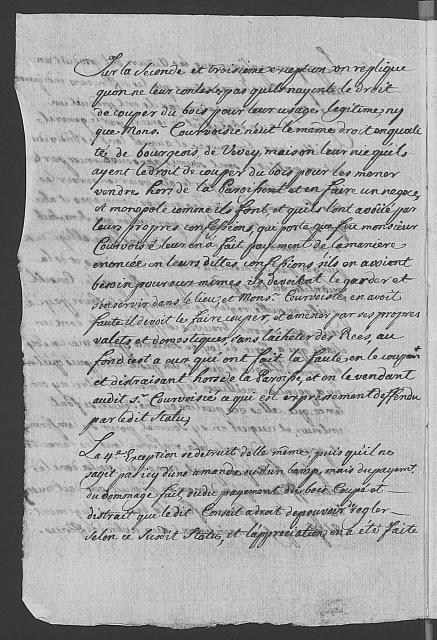 Sur la Seconde et troisieme exception on replique
qu'on ne leur conteste pas qu'ils n'ayent le droit
de couper du bois pour leur usage legitime, ny
que Mons. Courvoisie n'eut le même droit en quali
té, de bourgeois, de Vevey, mais on leur nie qu'ils
ayent le droit de couper du bois pour les mener
vendre hors de la Paroisse et en faire un negoce,
et monopole comme ils font et qu'ils l'ont avoüé par
leurs propres confessions, qui porte que feu monsieur
Courvoisié leur en a fait payement de la maniere
enoncée en leurs dittes, confessions s'ils en avoient
besoin pour eux mêmes ils devoient le garder et
conserver dans le lieu, et Mons.r Courvoisié, en avoit
faute il devoit les faire couper, et amener par ses propres
valets et domestiques, sans l'acheter des Rées, au
fond c'est a eux qui ont fait la faute en le coupant
et distraisant hors de la Paroisse, et en le vendant
audit S.r Courvoisié ce qui est expressement deffendu
par ledit Statu,
Le 4.e Exception se detruit d'elle même, puis qu'il ne
s'agit pas icy d'une amande ou d'un bamp, mais du payem.t
du dommage fait, et du payement du bois Coupé et
distrait que le dit Conseil a droit de pouvoir regler
selon ce Susdit Statu, et l'appreciation en a eté faite